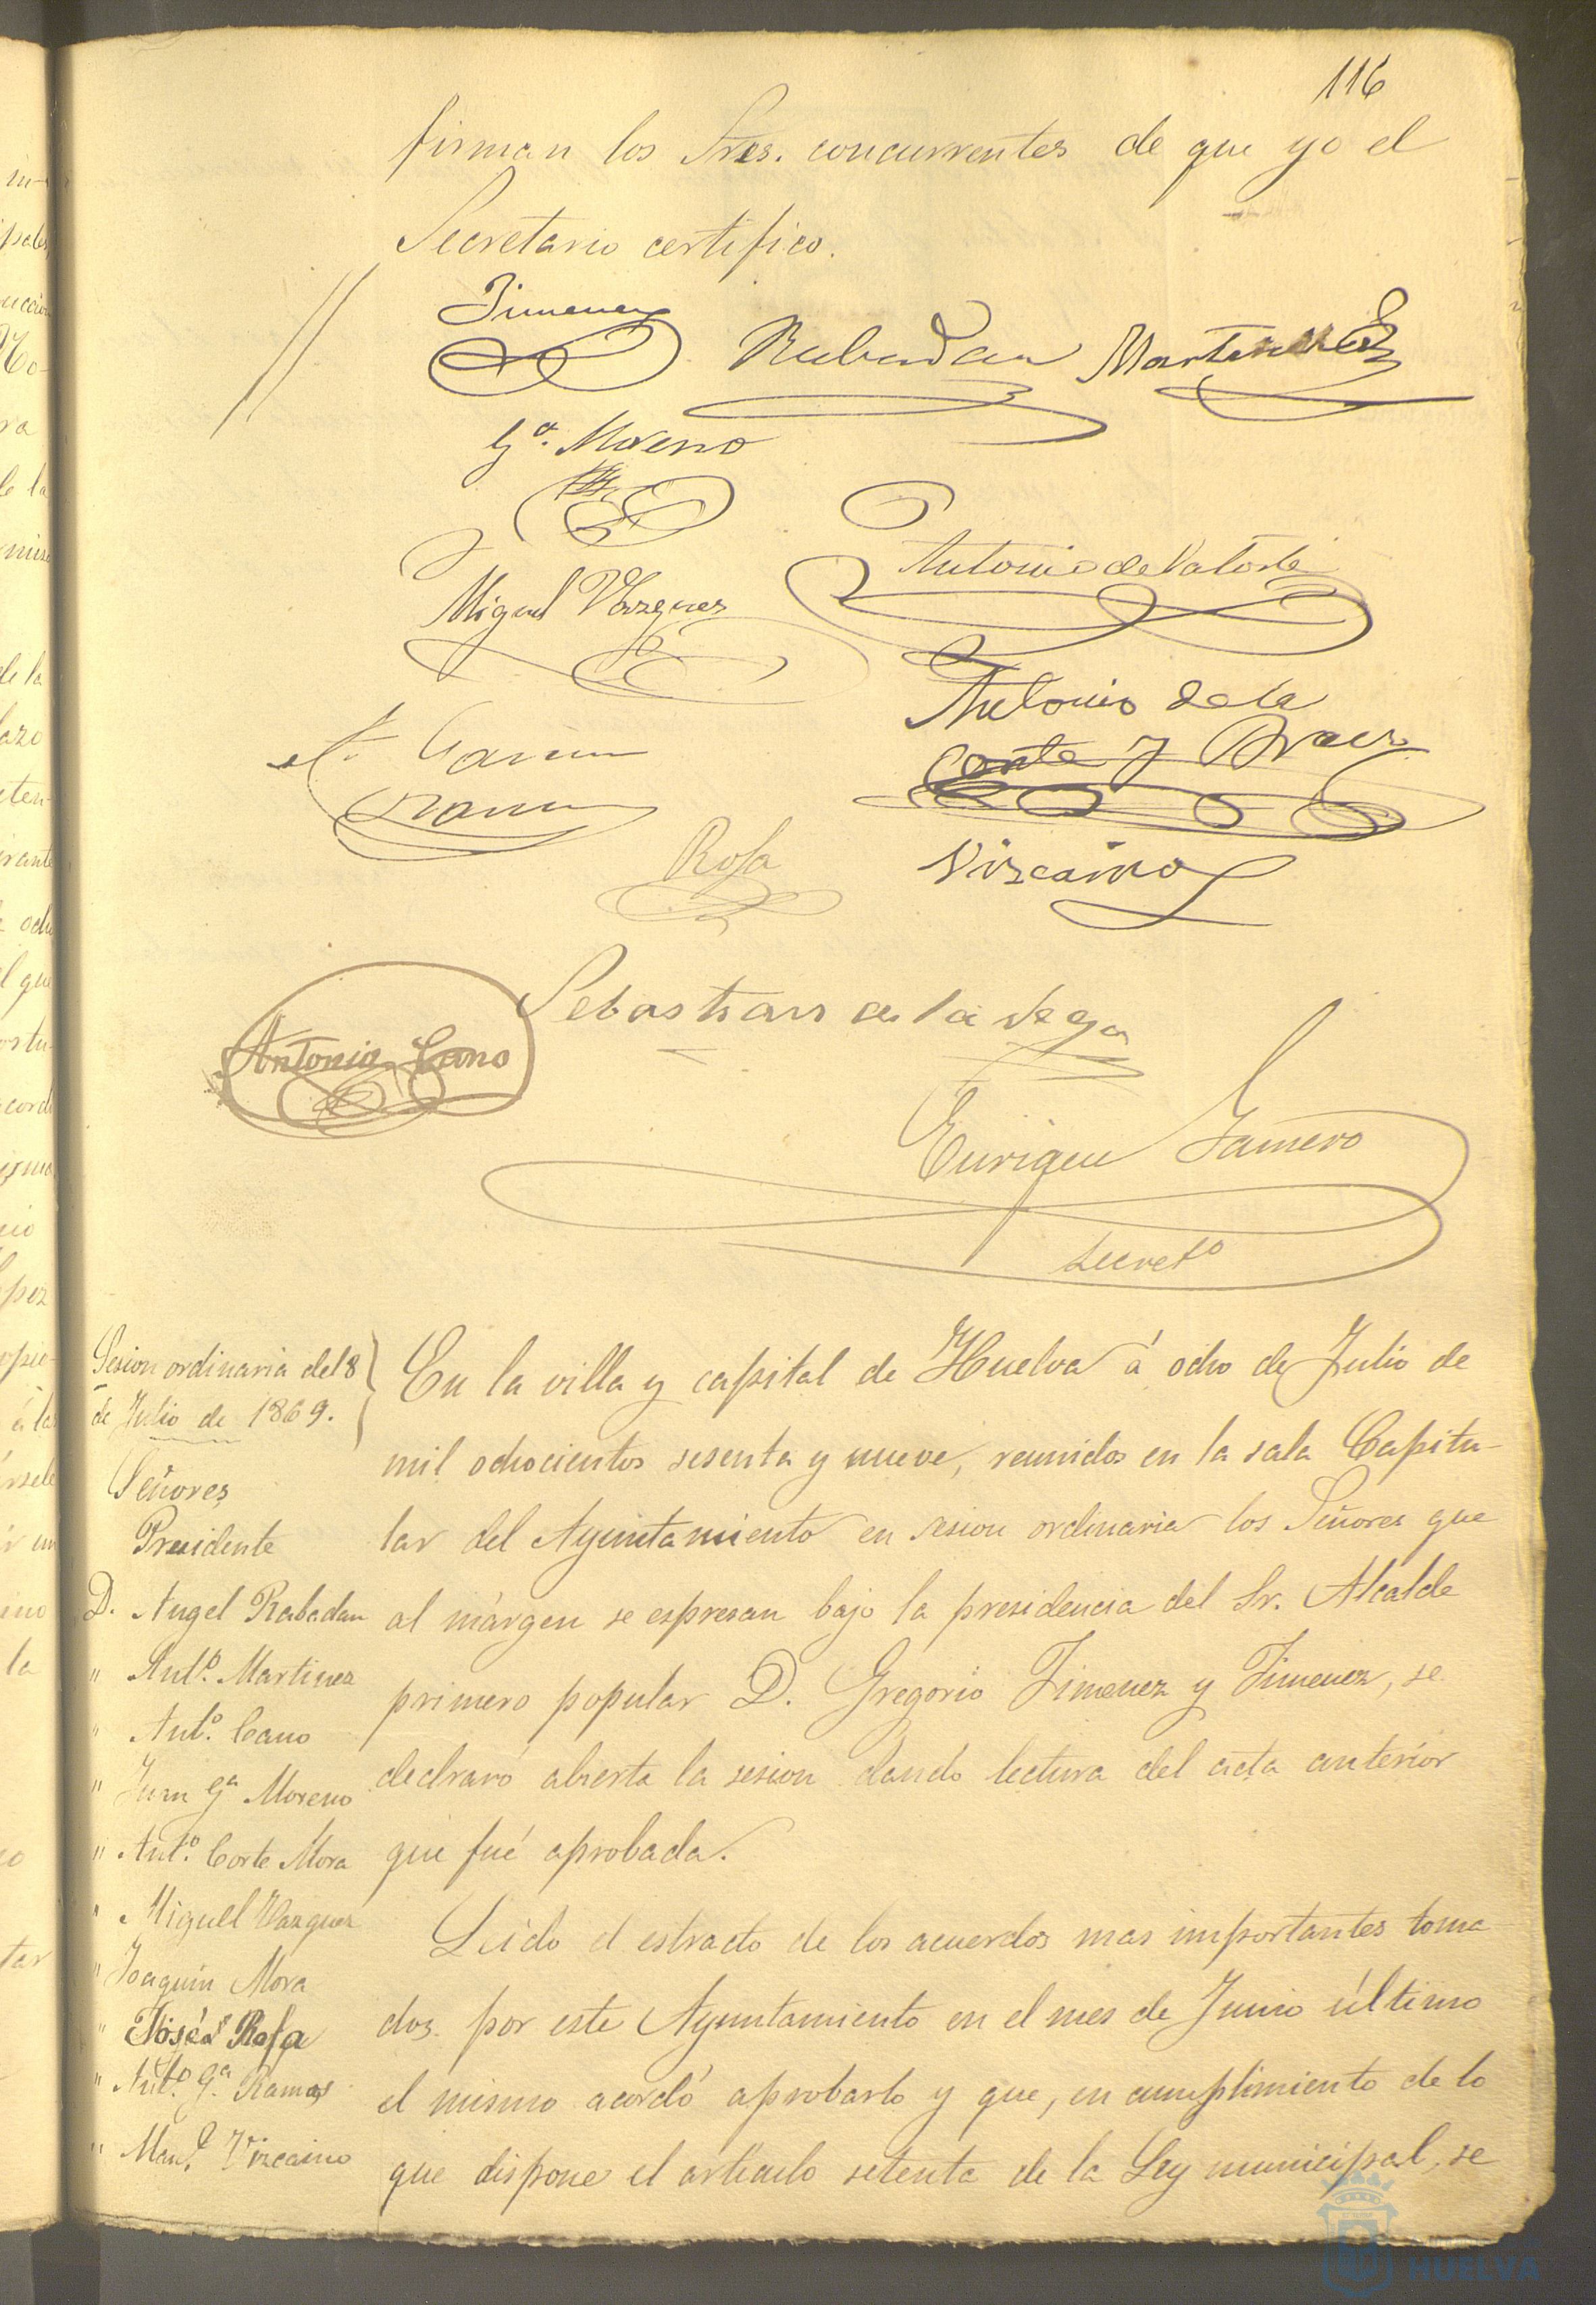 116
firman los Sres. concurrentes de que yo el
Secretario certifico.
Jimenez
Rabadan
Martinez
Ga. Moreno
Miguel Vazquez
Antonio de la Torre
Antonio de la
Corte y Bravo
A. Garcia
Ramos
Rofa
Vizcaino
Sebastian de la Vega
Antonio Cano
Enrique Gamero
Secreto
Sesion ordinaria del 8
de Julio de 1869.
Señores
Presidente
D. Angel Rabadan
" Anto. Martinez
" Anto. Cano
" Juan Ga Moreno
" Anto. Corte Mora
" Miguel Vazquez
" Joaquin Mora
" José Rofa
" Anto. Ga. Ramos
" Manl. Vizcaino
En la villa y capital de Huelva á ocho de Julio de
mil ochocientos sesenta y nueve, reunidos en la sala Capitu-
lar del Ayuntamiento en sesion ordinaria los Señores que
al márgen se espresan bajo la presidencia del Sr. Alcalde
primero popular D. Gregorio Jimenez y Jimenez, se
declraró abierta la sesion dando lectura del acta anterior
que fué aprobada.
Leido el estracto de los acuerdos mas importantes toma
dos por este Ayuntamiento en el mes de Junio último
el mismo acordó aprobarlo y que, en cumplimiento de lo
que dispone el artículo setenta de la Ley municipal, se
HUELVA